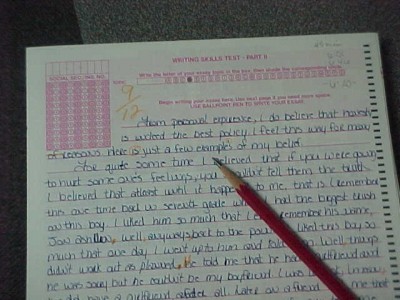 WRITING SKILLS TEST - PART II
Write the letter of your essay topic in the box, then shade the corresponding circle.
Begin writing your essay here. Use next page if you need more space.
USE BALLPOINT PEN TO WRITE YOUR ESSAY.
9/12
From personal experience, I do believe that
is indeed the best policy. I feel this way for many
of reasons. Here is just a few examples of my belief.
For quite some time I believed that if you were going
to hurt some one's feelings, you shouldn't tell them the truth.
I believed that atleast until it happened to me, that is. I remember
this one time back in seventh grade when I had the biggest crush
on this boy. I liked him so much that I can't remember his name,
well, anyways back to the point. I liked this boy so
much that one day I went up to him and told him. Well, things
didn't work out as planned, He told me that he had a girlfriend and
he was sorry but he couldn't be my boyfriend. I was
have a girlfriend after all. Later on a friend me that